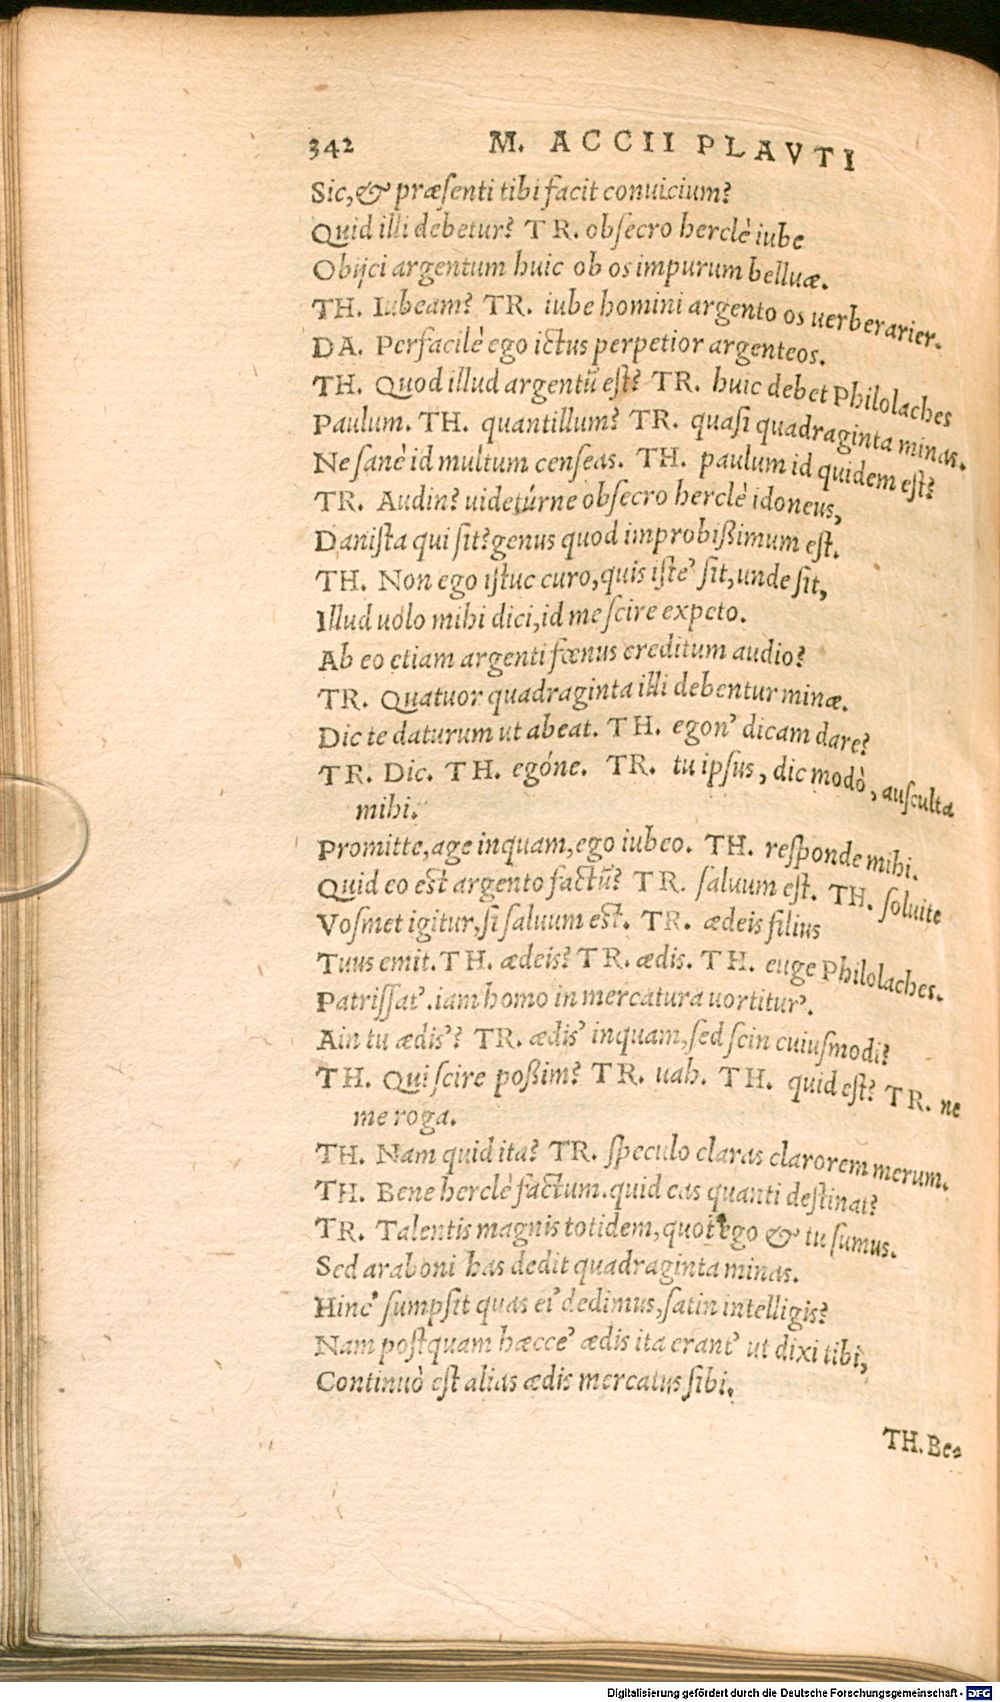 342 M. ACCII PLAVTI
Sic, & præsenti tibi facit conuicium?
Quid illi debetur? TR. obsecro herclè iube
Obijci argentum huic ob os impurum belluæ.
TH. Iubeam? TR. iube homini argento os uerberarier.
DA. Perfacilè ego ictus perpetior argenteos.
TH. Quod illud argentū est? TR. huic debet Philolaches
Paulum. TH. quantillum? TR. quasi quadraginta minas.
Ne sanè id multum censeas. TH. paulum id quidem est?
TR. Audin? uidetúrne obsecro herclè idoneus,
Danista qui sit? genus quod improbißimum est.
TH. Non ego istuc curo, quis iste' sit, unde sit,
Illud uolo mihi dici, id me scire expeto.
Ab eo etiam argenti fœnus creditum audio?
TR. Quatuor quadraginta illi debentur minæ.
Dic te daturum ut abeat. TH. egon' dicam dare?
TR. Dic. TH. egóne. TR. tu ipsus, dic modò, ausculta
mihi.
Promitte, age inquam, ego iubeo. TH. responde mihi.
Quid eo est argento factū? TR. saluum est. TH. soluite
Vosmet igitur, si saluum est. TR. ædeis filius
Tuus emit. TH. ædeis? TR. ædis. TH. euge Philolaches.
Patrissat'. iam homo in mercatura uortitur'.
Ain tu ædis'? TR. ædis' inquam, sed scin cuiusmodi?
TH. Qui scire poßim? TR. uah. TH. quid est? TR. ne
me roga.
TH. Nam quid ita? TR. speculo claras clarorem merum.
TH. Bene herclè factum. quid eas quanti destinat?
TR. Talentis magnis totidem, quot ego & tu sumus.
Sed araboni has dedit quadraginta minas.
Hinc' sumpsit quas ei' dedimus, satin intelligis?
Nam postquam hæcce' ædis ita erant' ut dixi tibi,
Continuò est alias ædis mercatus sibi.
TH. Be-
Digitalisierung gefördert durch die Deutsche Forschungsgemeinschaft - DFG